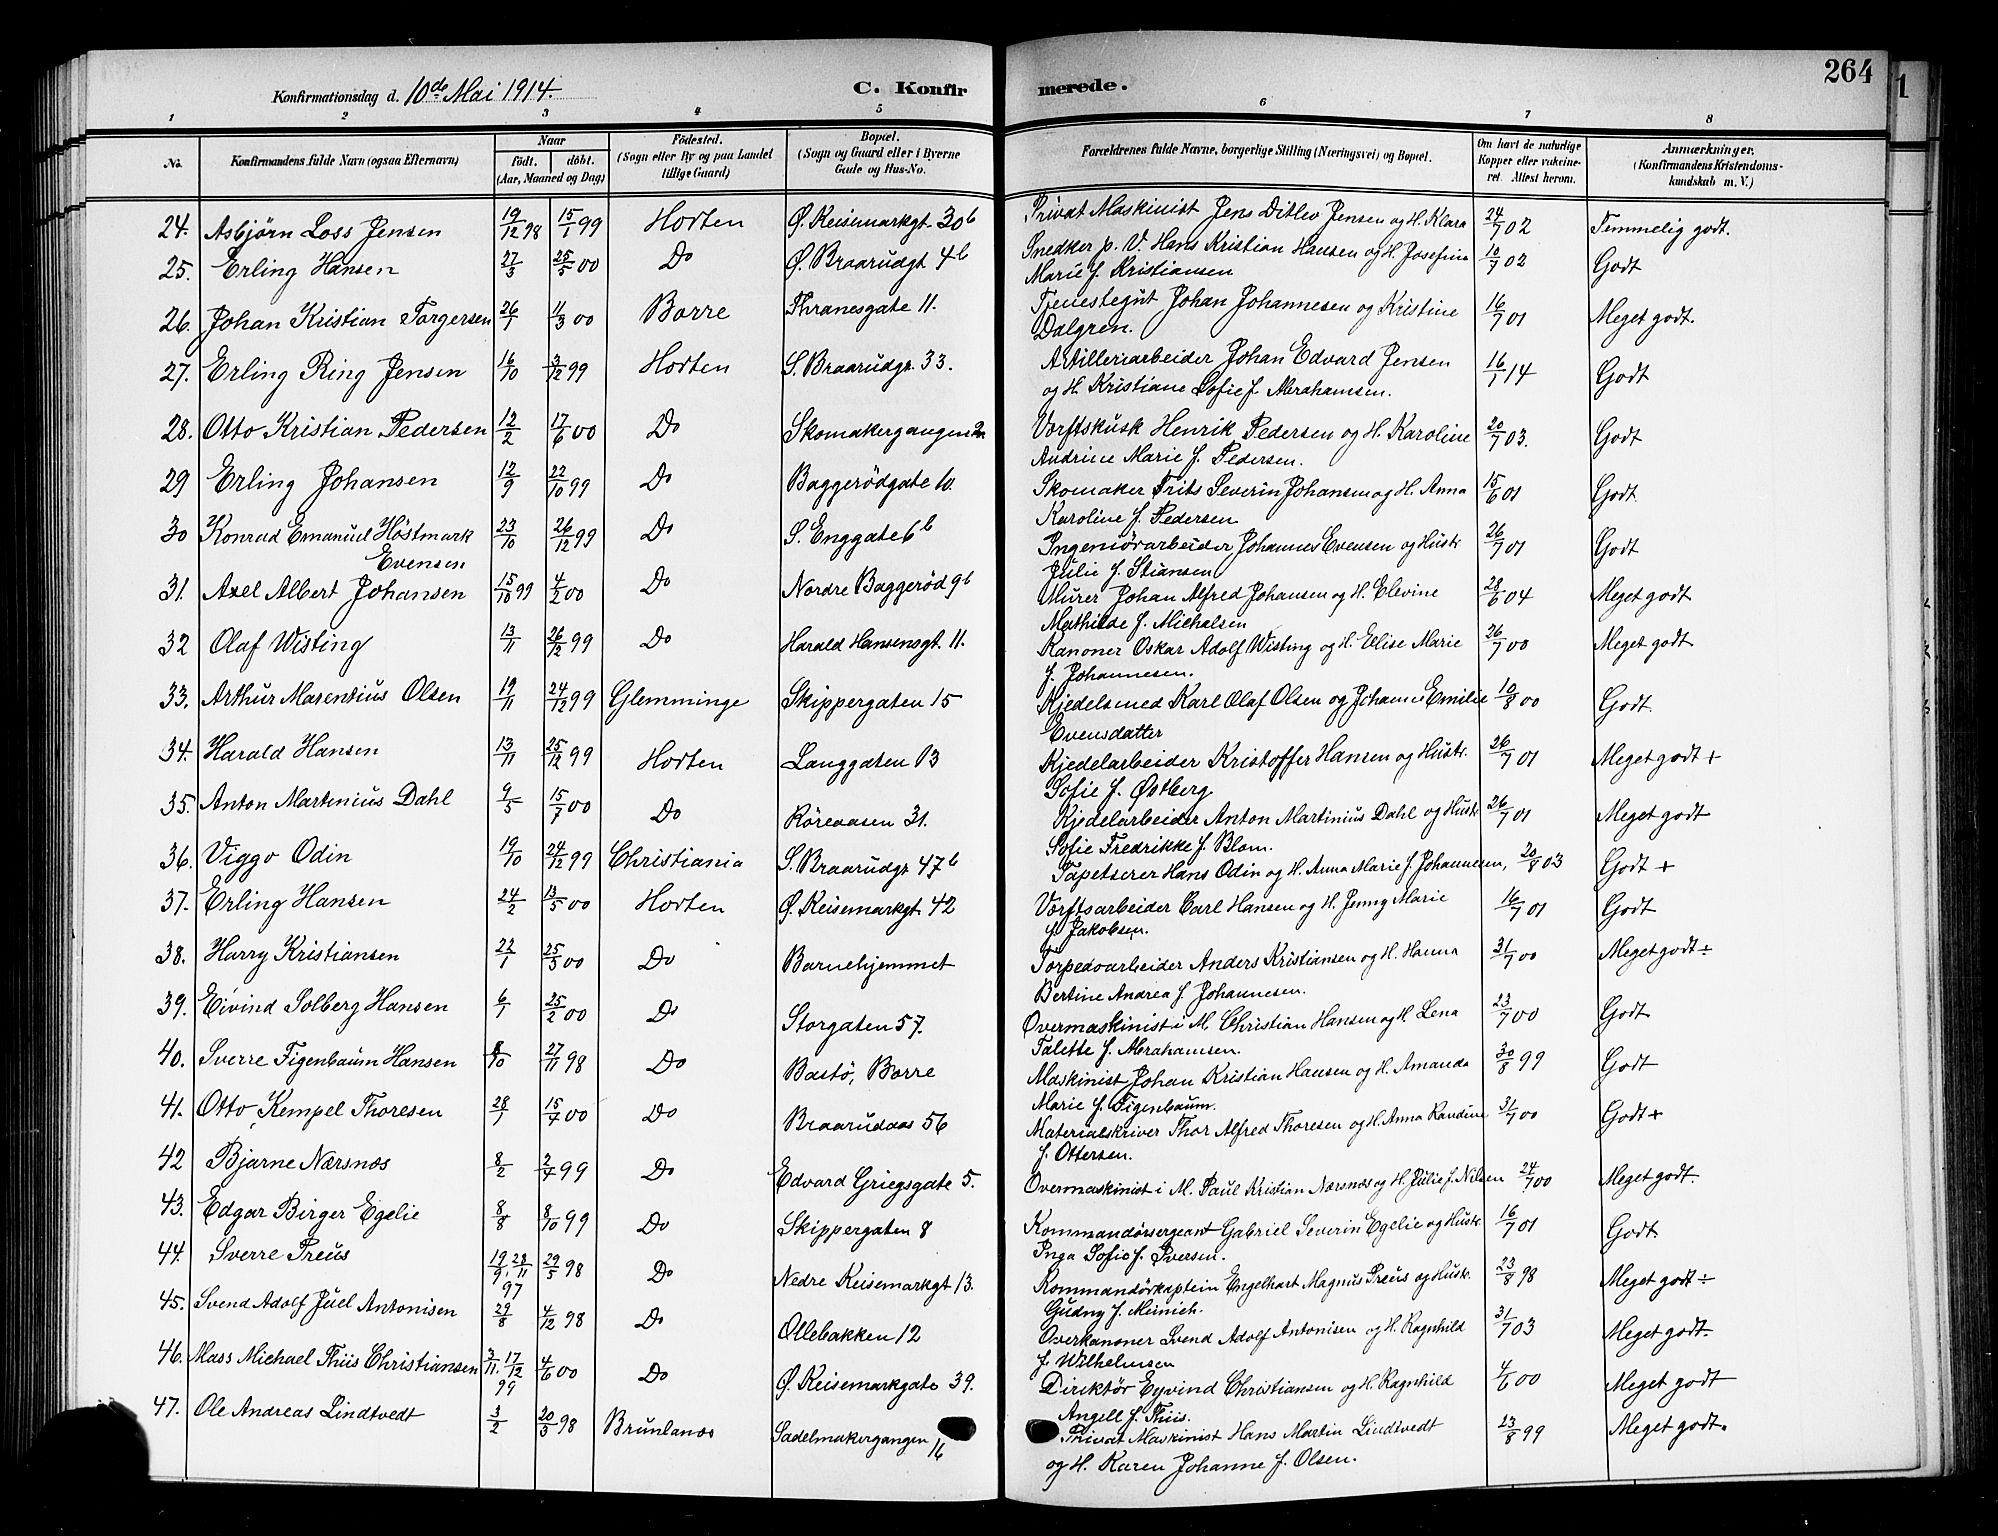 264
1
Konfirmationsdag d. 10de Mai 1914.
C. Konfirmerede.
1 2 3 4 5 6 7 8
No.
Konfirmandens fulde Navn (ogsaa Efternavn)
Naar
födt. döbt.
(Aar, Maaned og Dag)
Födested.
(Sogn eller By og paa Landet
tillige Gaard)
Bopæl.
(Sogn og Gaard eller i Byerne
Gade og Hus-No.
Forældrenes fulde Navne, borgerlige Stilling (Næringsvei) og Bopæl.
Om havt de naturlige
Kopper eller vakcine-
ret. Attest herom.
Anmærkninger.
(Konfirmandens Kristendoms-
kundskab m. V.)
24. Asbjørn Loss Jensen 19/12 98 15/1 99 Horten Ø. Keisemarkgt. 30b Privat Maskinist Jens Ditlev Jensen og H. Klara 24/7 02 Temmelig godt.
25. Erling Hansen 27/3 25/5 00 Do Ø. Braarudgt 4b Snedker p. V. Hans Kristian Hansen og H. Josefine 10/7 02 Godt
Marie f. Kristiansen
26. Johan Kristian Torgersen 26/1 11/3 00 Borre Thranesgate 11. Tjenestegut Johan Johannesen og Kristine 16/7 01 Meget godt.
Dalgren.
27. Erling Ring Jensen 16/10 3/12 99 Horten S. Braarudgt. 33. Artilleriarbeider Johan Edvard Jensen 16/1 14 Godt
og H. Kristiane Sofie f. Abrahamsen.
28. Otto Kristian Pedersen 12/2 17/6 00 Do Skomakergangen 2a Værftskusk Henrik Pedersen og H. Karoline 20/7 03. Godt
Andrine Marie f. Pedersen.
29 Erling Johansen 12/9 22/10 99 Do Baggerödgate 10. Skomaker Frits Severin Johansen og H. Anna 15/6 01 Godt
Karoline f. Pedersen
30 Konrad Emanuel Höstmark 23/10 26/12 99 Do S. Enggate 6b Ingeniörarbeider Johannes Evensen og Hustr. 26/7 01 Godt
Evensen Julie f. Stiansen
31. Axel Albert Johansen 15/10 99 4/2 00 Do Nordre Baggeröd 9b Murer Johan Alfred Johansen og H. Elevine 28/6 04 Meget godt
Mathilde f. Michalsen
32 Olaf Wisting 13/11 26/12 99 Do Harald Hansensgt. 11. Kanoner Oskar Adolf Wisting og H. Elise Marie 26/7 00 Meget godt
f. Johannesen.
33. Arthur Marensius Olsen 19/11 24/12 99 Glemminge Skippergaten 15 Kjedelsmed Karl Olaf Olsen og Johanne Emilie 10/8 00 Godt
Evensdatter
34. Harald Hansen 13/11 25/12 99 Horten Langgaten 13 Kjedelarbeider Kristoffer Hansen og Hustr. 26/7 01 Meget godt +
Sofie f. Østberg
35. Anton Martinius Dahl 9/5 15/7 00 Do Röreaasen 31. Kjedelarbeider Anton Martinius Dahl og Hustr. 26/7 01 Meget godt
Sofie Fredrikke f. Blom.
36. Viggo Odin 19/10 24/12 99 Christiania S. Braarudgt 47b Tapetserer Hans Odin og H. Anna Marie f. Johannesen, 20/8 03 Godt +
37. Erling Hansen 24/2 13/5 00 Horten Ø. Keisemarkgt. 42 Værftsarbeider Carl Hansen og H. Jenny Marie 16/7 01 Godt
f. Jakobsen.
38. Harry Kristiansen 22/1 25/5 00 Do Barnehjemmet Torpedoarbeider Anders Kristiansen og H. Hanna 31/7 00 Meget godt ÷
Bertine Andrea f. Johannesen.
39. Eivind Solberg Hansen 6/1 25/2 00 Do Storgaten 57. Overmaskinist i M. Christian Hansen og H. Lena 23/7 00 Godt
Talette f. Abrahamsen.
40. Sverre Figenbaum Hansen 8/10 27/11 98 Do Bastö, Borre Maskinist Johan Kristian Hansen og H. Amanda 30/8 99 Godt
Marie f. Figenbaum.
41. Otto Kempel Thoresen 28/1 15/7 00 Do Braarudaas 56 Materialskriver Thor Alfred Thoresen og H. Anna Randine 31/7 00 Godt +
f. Ottersen.
42 Bjarne Nærsnæs 8/2 2/4 99 Do Edvard Griegsgate 5. Overmaskinist i M. Paul Kristian Nærsnæs og H. Julie f. Nilsen 24/7 00 Meget godt.
43. Edgar Birger Egelie 8/8 8/10 99 Do Skippergaten 8 Kommandörsergeant Gabriel Severin Egelie og Hustr. 16/7 01 Godt
Inga Sofie f. Iversen.
44. Sverre Preus 19/9, 23/11 97 29/5 98 Do Nedre Keisemarkgt 13. Kommandörkaptein Engelhart Magnus Preus og Hustr. 23/8 98 Meget godt ÷
Gudny f. Meinich.
45. Svend Adolf Juel Antonisen 29/8 4/12 98 Do Ollebakken 12 Overkanoner Svend Adolf Antonisen og H. Ragnhild 31/7 03 Meget godt.
f. Wilhelmsen
46. Mass Michael Thiis Christiansen 3/11, 17/12 99 4/6 00 Do Ø. Keisemarkgate 39. Direktör Eyvind Christiansen og H. Ragnhild 4/6 00 Meget godt
Angell f. Thiis.
47. Ole Andreas Lindtvedt 3/2 20/3 98 Brunlanæs Sadelmakergangen 16 Privat Maskinist Hans Martin Lindtvedt 23/8 99 Meget godt.
og H. Karen Johanne f. Olsen.